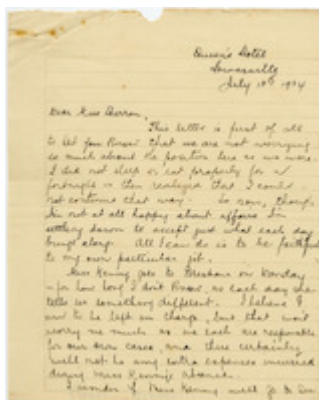 Queen's Hotel
Townsville
July 1934
Dear Miss
This letter is first of all
to let you know that we are not worrying
so much about the position here as we were.
I did not sleep or eat properly for a
fortnight & then realized that I could
not continue that way. So now, though
I'm not at all happy about affairs I'm
settling down to accept just what each day
brings along. All I can do is to be faithful
to my own particular job.
Miss Kenny goes to Brisbane on Monday
- for how long I don't know, as each day she
tells us something different. I believe I
am to be left in charge, but that won't
worry me much as we each are responsible
for our own cases, and there certainly
will not be any extra expenses incurred
during Miss Kenny's absence.
I wonder if Miss Kenny will go to